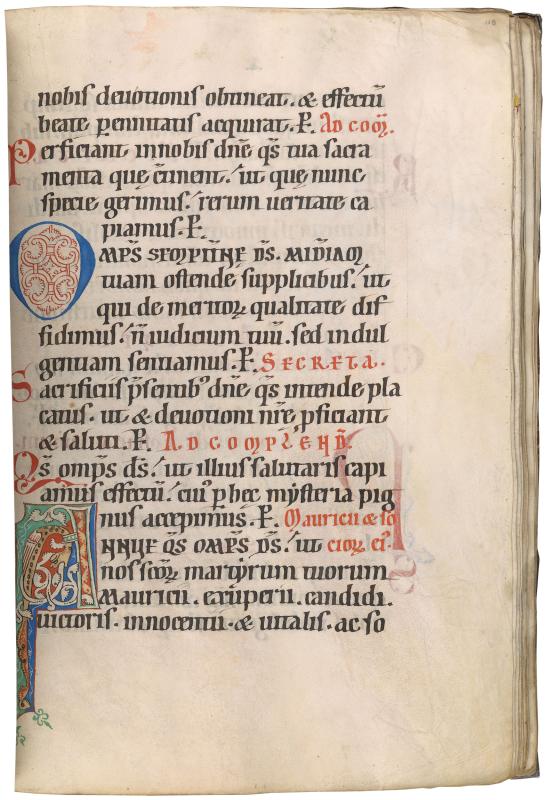 118
nobis deuotionis obtineat. & effectū
beate p̲ennitatis acquirat. P̲. AD COM̄.
Perficiant in nobis dn̄e q̄s tua sacra
menta quę c̄tinent. ut quę nunc
specie gerimus. rerum ueritate ca
piamus. P̲.
OMPS̄ SEMPIT̄NE DS̄. MIS̄DIAM
tuam ostende supplicibus. ut
qui de meritoꝝ qualitate dif
fidimus. n̄ iudicium tuū. sed indul
gentiam sentiamus. P̲. SECRETA.
Sacrificiis p̄sentib; dn̄e q̄s intende pla
catus. ut & deuotioni nr̄e ꝓficiant
& saluti. P̲. AD COMPLEND̄.
Qs̄ omp̄s ds̄. ut illius salutaris capi
amus effectū. cuiꝰ p̲ hec mẏsteria pig
nus accepimus. P̲. Mauricii & so
ANNUE QS̄ OMPS̄ DS̄. UT cioꝝ eiꝰ.
nos scōꝝ martẏrum tuorum
Mauricii. exuperii. candidi.
uictoris. innocentii. & uitalis. ac so